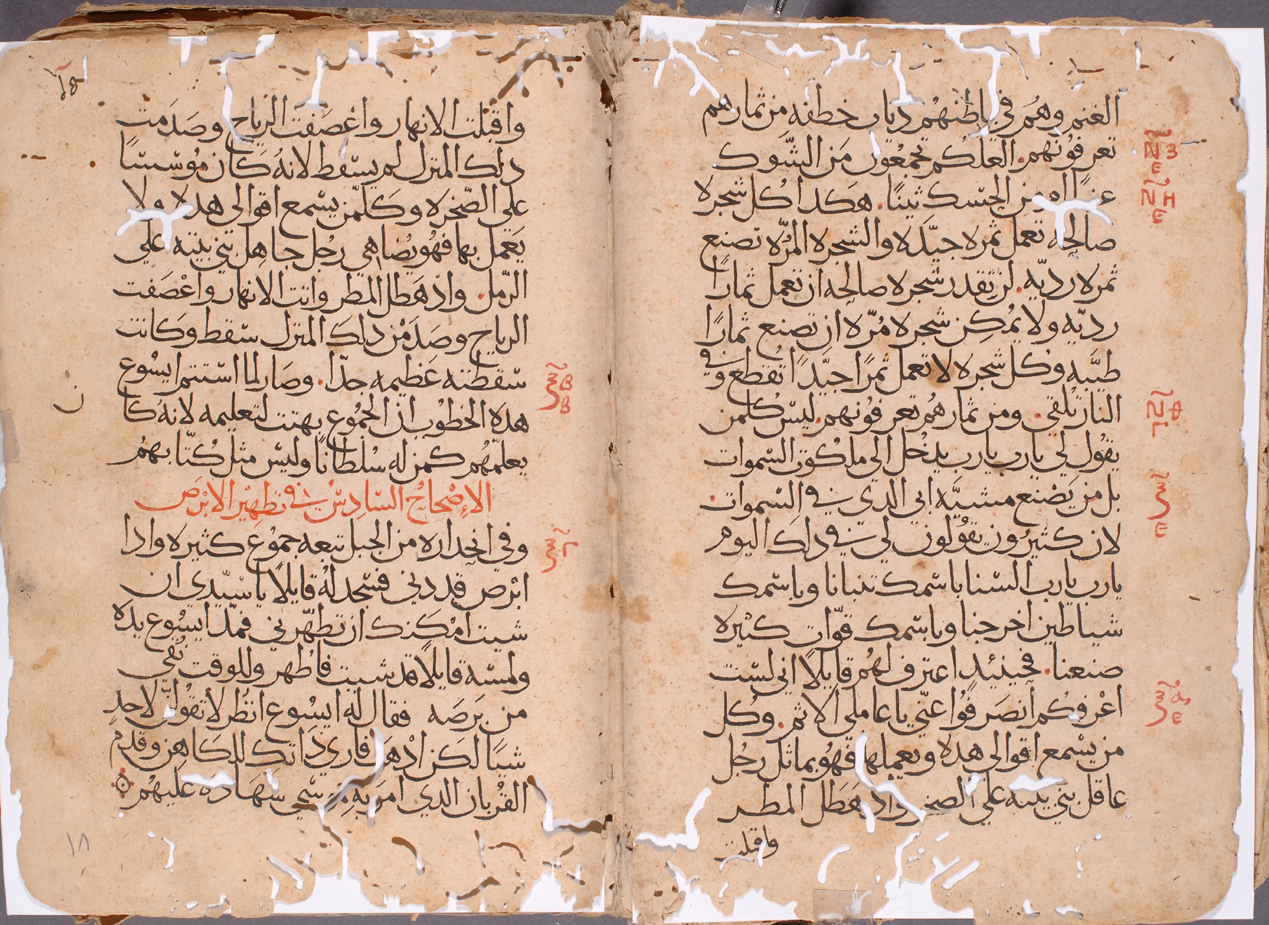 الغنم وهم في باطنهم دياب خطفه من ثمارهم
تعرفونهم. العلكم تجمعون من الشوك
عنبًا او من الحسك تينًا. هكدا كل شجره
صالحه تعمل ثمره جيّده والشجره المرّه تصنع
ثمره رديّه. لن تقدر شجره صالحه ان تعمل ثمارًا
رديّه ولا يمكن شجره مُرّه ان تصنع ثمارًا
طيّبه وكل شجره لا تعمل ثمرًا جيّدًا تقطع وفي
النار تلقي. ومن ثمارهُم تعرفونهم. ليس كلمن
يقول لي يارب يارب يدخل الي ملكوت السموات
بل من يصنع مشيّه ابي الدي في السموات.
لان كثيرون يقولون لي في دلك اليوم
يارب يارب السنا باسمك تنبانا وباسمك
شياطين اخرجنا وباسمك قوّات كثيره
صنعنا. فحينيدٍ اعترف لهم قايلًا اني لست
اعرفكم انصرفوا عنّي يا عاملي الاثم. وكل
من يسمع اقوالي هده ويعملها فهو يماثل رجل
عاقل بني بيته علي الصخره واد هطل المطر
واقبلت
واقبلت الانهار واعصفت الرياح وصدمت
دلك المنزل لم يسقط لانه كان مؤسسًا
علي الصّخره وكلّمن يسمع اقوالي هده ولا
يعمل بها فهو يضاهي رجل جاهل بني بيته علي
الرمل. واد هطل المطر واتت الانهار واعصفت
الرياح وصدمن دلك المنزل سقط وكانت
سقطته عظيمه جدّا. وصار لما استتم ايسوع
هده الخطوب ان الجموع بهتت لتعليمه لانه كان
يعلّمهم كمن له سلطانًا وليس مثل كتّابهم
الاصحاح السادس في تطهير الابرص
وفي انحداره من الجبل تبعه جموع كثيره وادا
ابرص قد دني فسجد له قايلًا يا سيّدي ان
شيت امكنك ان تطهّرني فمدّ ايسوع يده
ولمسه قايلًا قد شيت فاطهر وللوقت نُقي
من برصه فقال له ايسوع انظر لا تقولنّ لاحدٍ
شيًا لكن ادهب فاري داتك للكاهن وقدم
القربان الدي امر به موسي شهاده عليهم
١٨